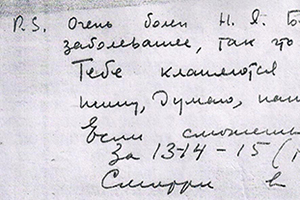 P.S. Очень болен Н. Я. Б
заболевание, так что
Тебе кланяются
пишу, думаю, нап
Если сможешь
За 1314-15 (
Смотри в